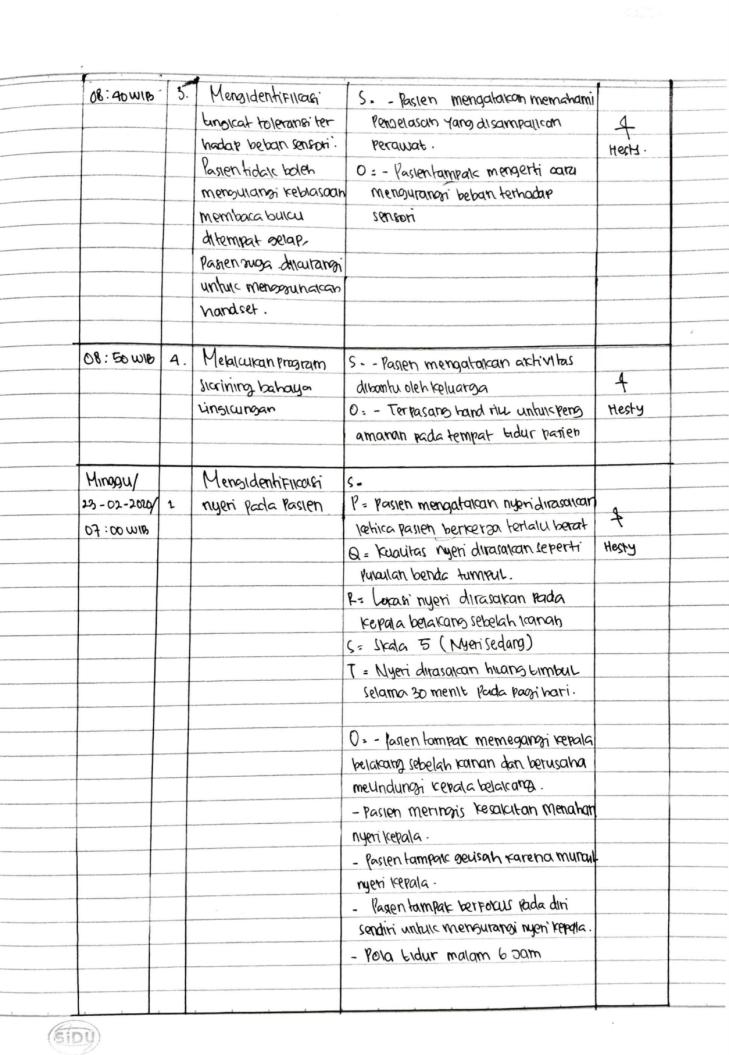 08:40 WIB
3.
Mengidentifikasi
tingkat toleransi ter
hadap beban sensori.
Pasien tidak boleh
mengulangi kebiasaan
membaca buku
ditempat gelap,
Pasien juga dikurangi
untuk menggunakan
handset.
S. - Pasien mengatakan memahami
Penjelasan yang disampaikan
perawat.
O: - Pasien tampak mengerti cara
mengurangi beban terhadap
sensori
Hesty.
08:50 WIB
4.
Melakukan program
skrining bahaya
lingkungan
S. - Pasien mengatakan aktivitas
dibantu oleh keluarga
O: - Terpasang hand rill untuk peng
amanan pada tempat tidur pasien
Hesty
Minggu/
23-02-2020/
07:00 WIB
1
Mengidentifikasi
nyeri pada Pasien
S-
P= Pasien mengatakan nyeri dirasakan
ketika pasien berkerja terlalu berat
Q= Kualitas nyeri dirasakan seperti
Pukulan benda tumpul.
R= Lokasi nyeri dirasakan pada
kepala belakang sebelah kanan
S= Skala 5 (Nyeri sedang)
T= Nyeri dirasakan hilang timbul
selama 30 menit pada pagi hari.
O: - Pasien tampak memegangi kepala
belakang sebelah kanan dan berusaha
melindungi kepala belakang.
- Pasien meringis kesakitan menahan
nyeri kepala.
- Pasien tampak gelisah karena muncul
nyeri kepala.
- Pasien tampak berfokus pada diri
sendiri untuk mengurangi nyeri kepala.
- Pola tidur malam 6 Jam
Hesty
SiDU